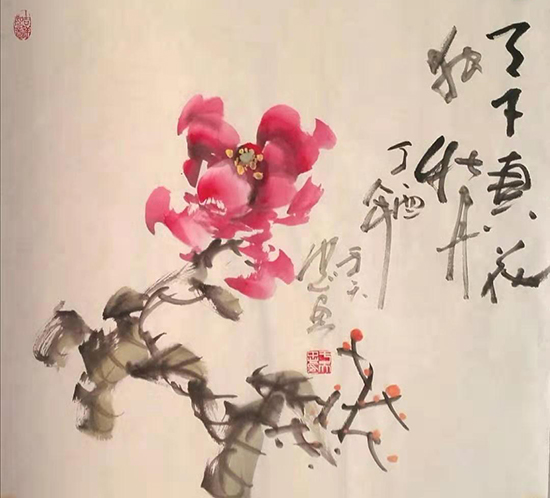 天下真花
独牡丹
丁酉年
画